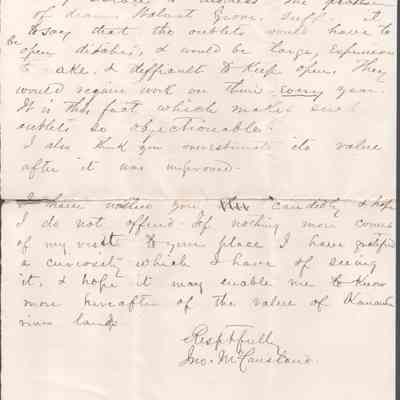 of drain Walnut Grove. Suffi it
to say that the outlets would have to
be
open ditches, & would be large, expensive
to make. & deffirault to keep open. They
would require work on them every year.
It is this fact which makes such
outlets so objectionable.
I also think you overestimate its value
after it was improved.
I have written you candidly & hope
I do not offend. If nothing more comes
of my visit to your place I have gratified
a curiosity which I have of seeing
it, & hope it may enable me to know
more hereafter of the value of Kanawha
river lands
Resptfully
Jno. McCausland.